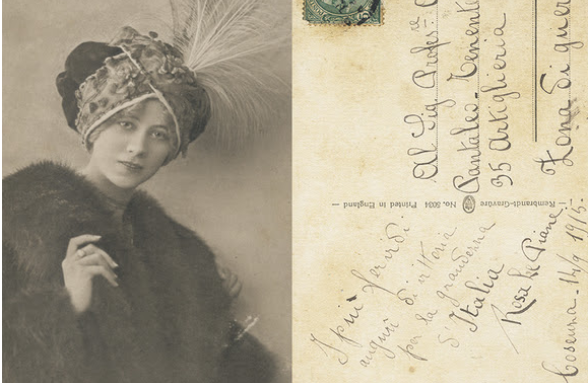 Al Sig. Profs.re
Pantaleo - Tenente
35 Artiglieria
Zona di guer
Rembrandt-Gravüre No. 5054 Printed in England
I più fervidi
auguri di vittoria
per la grandezza
d'Italia
Rosa De Piane
Cosenza - 14/9 1915.